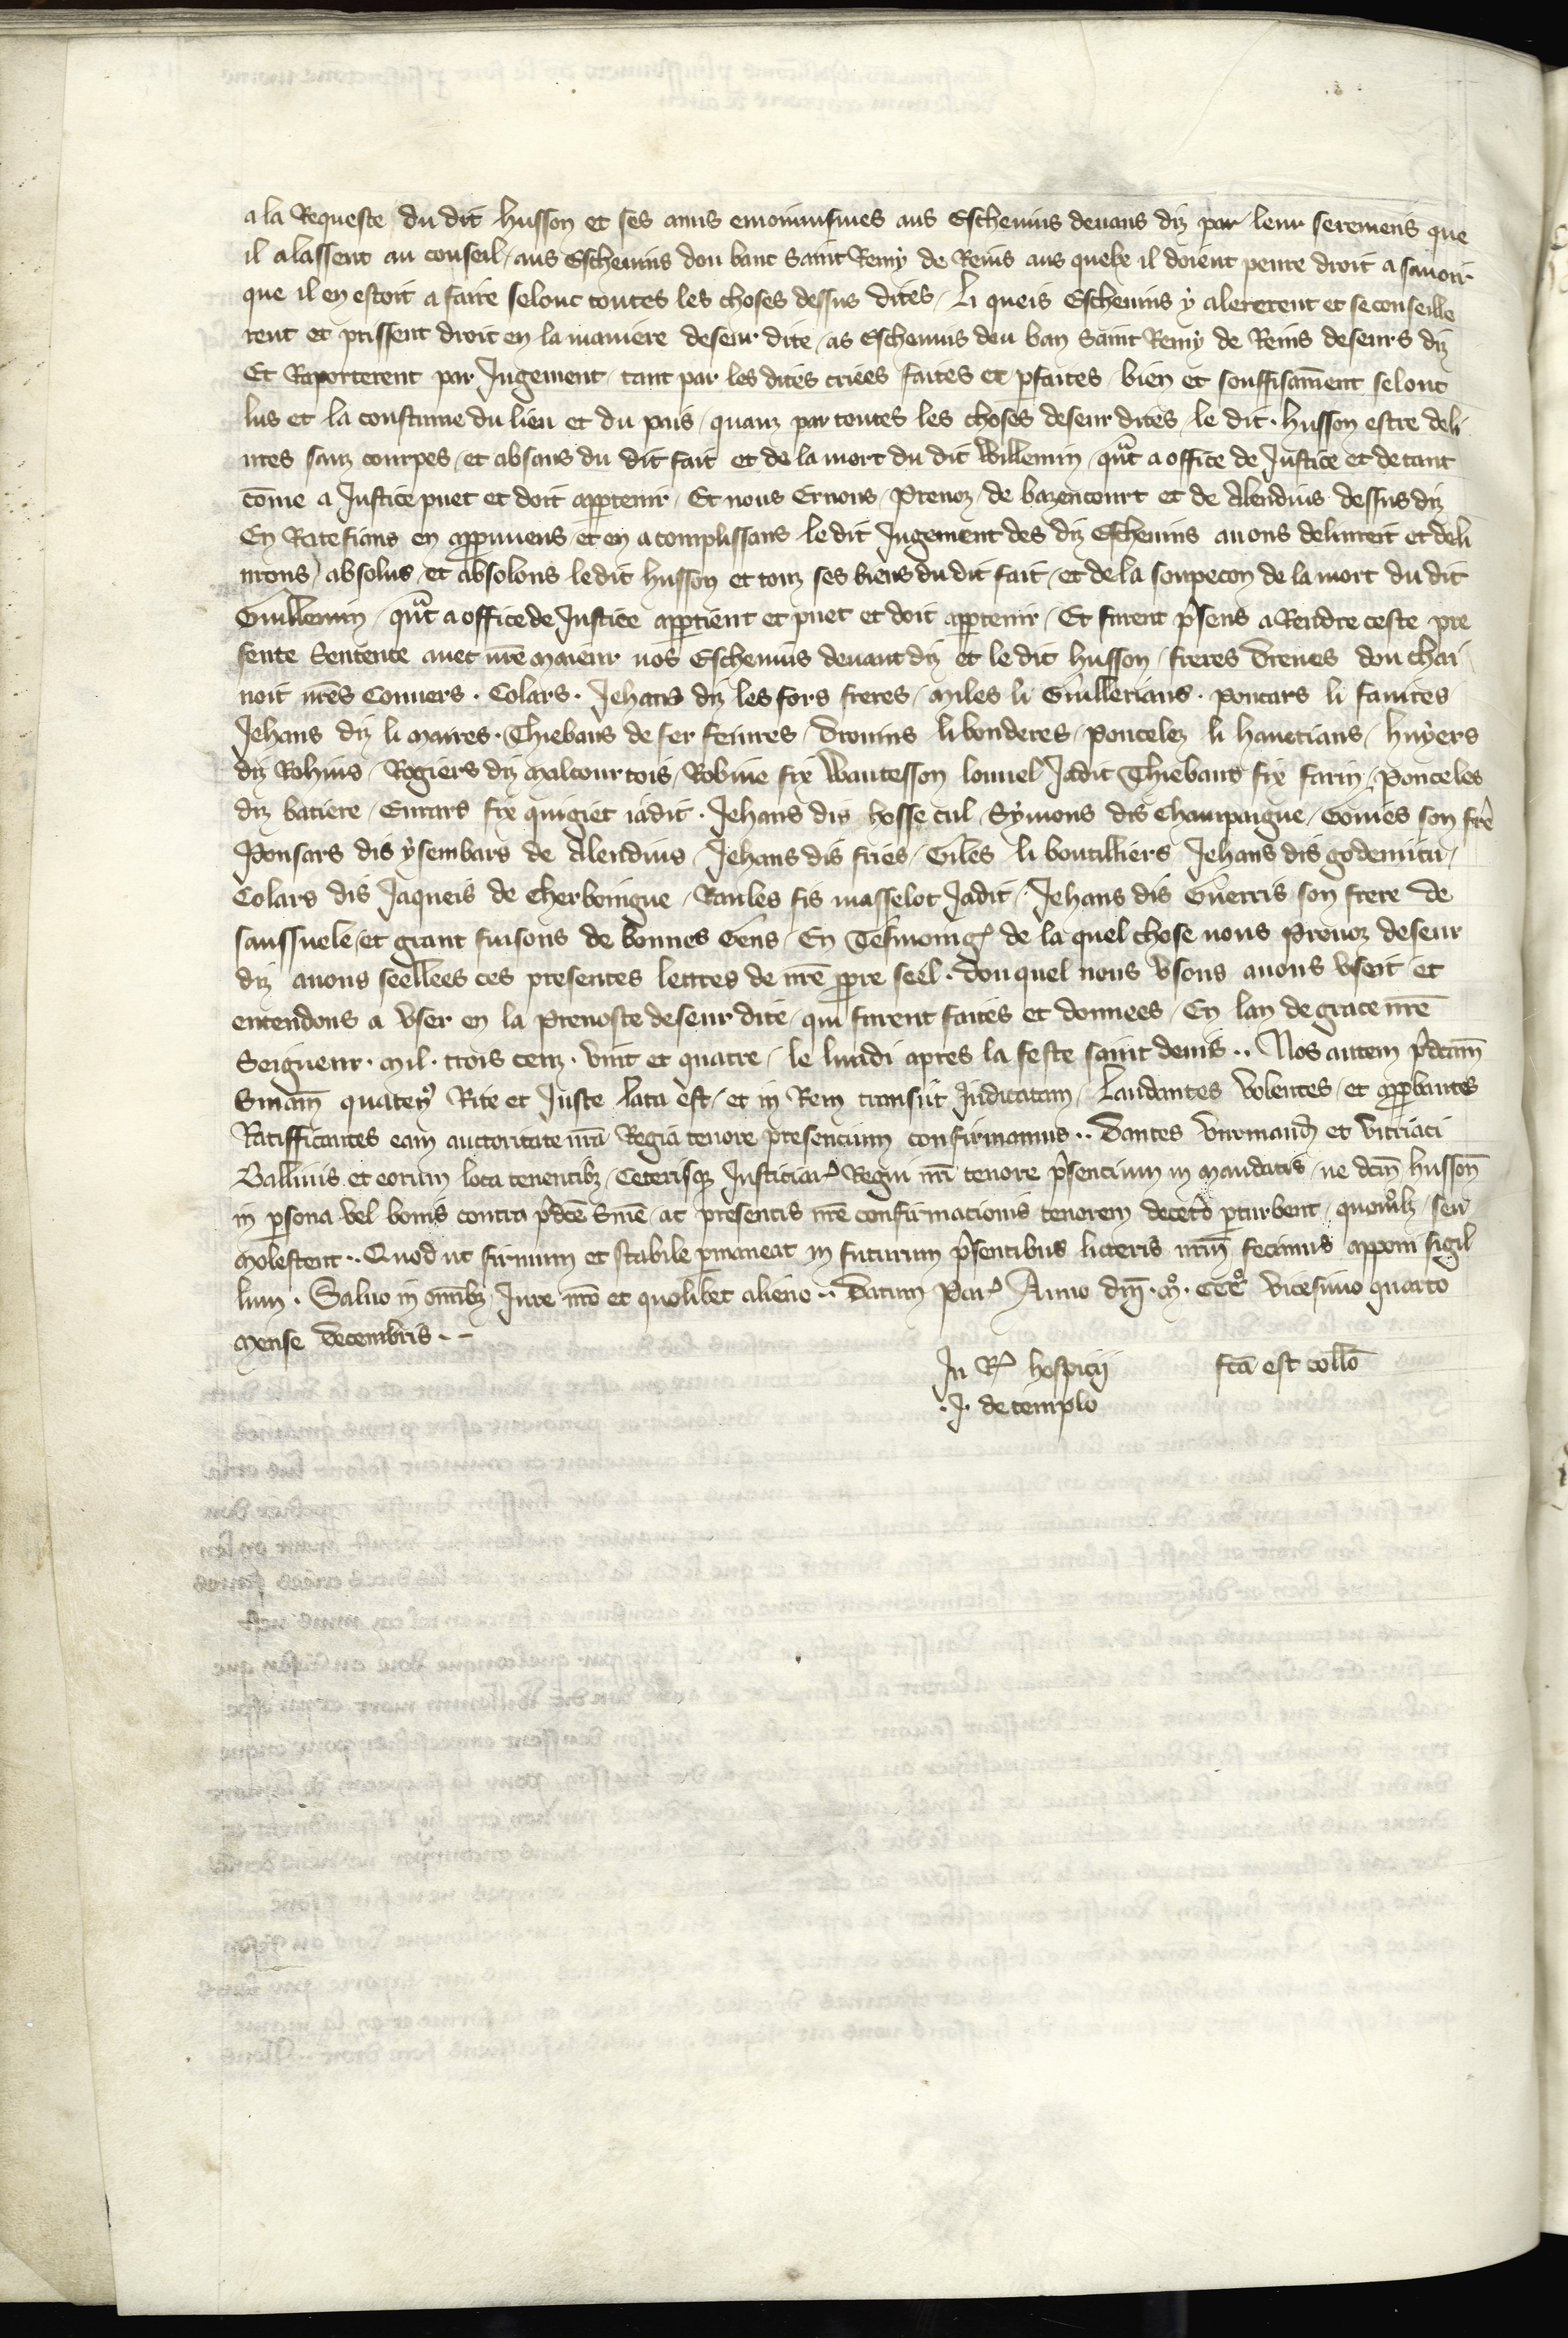 a la Requeste du dit Husson et ses amis enioinnsmes aus Escheuins deuans diz par leur seremens que
il alassent au conseil aus Escheuins dou banc Saint Remy de Reins aus quelx il doient penre droit a sauoir
que il en estoit a faire selonc toutes les choses dessus dites, Li queis Escheuins y alererent et se conseille
rent et prissent droit en la maniere deseur dite, as Escheuins dou ban Saint Remy de Reins deseurs diz
Et Raporterent par Jugement tant par les dites criees faites et pfaites bien et souffisamēt selonc
lus et la coustume du lieu et du pais, quanz par toutes les choses deseur dites, le dit. Husson estre deli
ures sanz courpes, et absans du dit fait et de la mort du dit Willemin, qu̅t a office de Justice et de tant
cōme a Justice puet et doit appartenir, Et nous Ernous, Preuoz, de bazencourt et de Alenduis dessus diz
En Ratefians en appruuens, et en acomplissans le dit Jugement des diz Escheuins auons deliureit et deli
urons, absolus, et absolons le dit Husson et touz ses biens du dit fait, et de la soupecon de la mort du dit
Guillemin, qu̅t a office de Justice appartient et puet et doit appartenir, Et furent p̄sens a Rendre ceste pre
sente Sentence auec nr̄e maieur nos Escheuins deuant diz et le dit Husson, freres Dreues dou chai
noit nr̄es Conuers. Colars. Jehans diz les fors freres, Miles li Guillerians. Poncars li fauites
Jehans diz li maires. Thiebaus de fer feiures, Drouins li bonderes, Poncelez li hanetians, huyers
diz Rohins, Rogiers diz Malcourtois, Robine fix Wautesson louuel Jadit Thiebaus fix farin, Ponceles
diz batiere, Eurars fix quigiet iadit. Jehans dis hosse cul, Symons dis Champaigne, Gonies son frē
Ponsars dis ysembars de Alenduis, Jehans dis fries, Giles li boutilliers Jehans dis godemicu,
Colars dis Jaqueis de Cherboingue, Raules fis masselot Jadit, Jehans dis Guerris son frere de
saussuele, et grant fuisons de bonnes Gens, En Tesmoing de la quel chose nous Preuoz deseur
diz auons seellees ces presentes lettres de nr̄e ppre seel. dou quel nous vsons auons vseit et
entendons a vser en la Preuoste deseur dite, qui furent faites et donnees, En lan de grace nr̄e
Seigneur. mil. trois cenz. vint et quatre, le lundi apres la feste saint denis.. Nos autem p̄dcam̄
Sniam̄ quaten9 Rite et Juste lata est, et in Rem transiit Judicatam, Laudantes volentes, et approbantes
Ratifficantes eam auctoritate nr̄a Regia tenore presentium confirmamus.. Dantes viromand et vitriaci
Balliuis et eorum loca tenentibz, Ceterisqz Justiciar Regni nr̄i tenore p̄sentium in mandatis, ne dcm̄ Husson̄
in psona vel bonis contra p̄dce Snie, ac presentis nr̄e confirmacionis tenorem decet̄o pturbent, quom̊lz, seu
Molestent.. Quod ut firmum et stabile pmaneat in futurum p̄sentibus litteris nr̄m̄ fecimus apponi sigil
lum. Saluo in omībz, Jure nr̄o et quolibet alieno.. Datum Par Anno dn̄i. M̊. CCC̊ vicesimo quarto
Mense Decembris. -
In R hospicij fcā est collō
.J. de templo